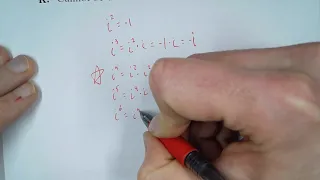 i² = -1
i³ = i² · i = -1 · i = -i
i⁴ = i² · i²
i⁵ = i⁴ · i
i⁶ = i⁴